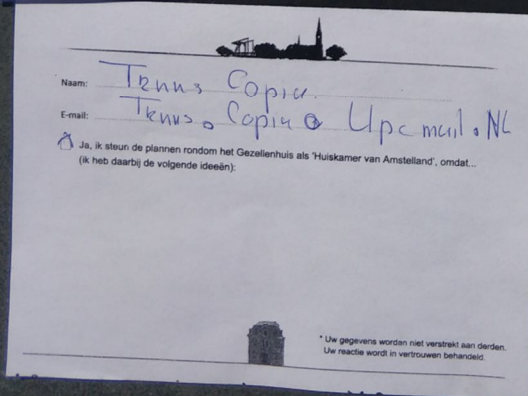 Naam: Teuns Copier.
E-mail: Teuns.Copier@Upcmail.NL
Ja, ik steun de plannen rondom het Gezellenhuis als 'Huiskamer van Amstelland', omdat...
(ik heb daarbij de volgende ideeën):
* Uw gegevens worden niet verstrekt aan derden.
Uw reactie wordt in vertrouwen behandeld.